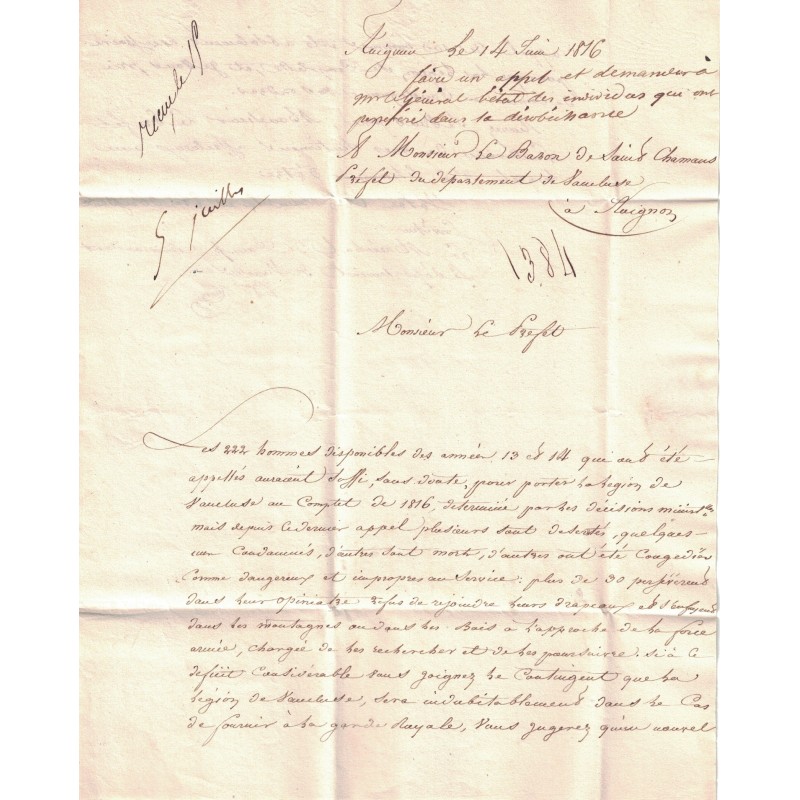 reçu le 15
Avignon Le 14 Juin 1816
faire un appel et demander à
Mr le Général l'état des individus qui ont
persévéré dans la désobéissance
A Monsieur Le Baron de Saint Chamans
Préfet du département de Vaucluse
à Avignon
5 juillet
1384
Monsieur Le Préfet
Les 222 hommes disponibles des années 13 et 14 qui ont été
appellés auraient Suffi, sans doute, pour porter la Légion de
Vaucluse au Complet de 1816, déterminé par les décisions ministlles
mais depuis ce dernier appel plusieurs sont desertés, quelques-
uns Condamnés, d'autres sont morts, d'autres ont été Congediés
Comme dangereux et impropres au Service: plus de 30 persévérent
dans leur opiniatre refus de rejoindre leurs drapeaux et s'enfuyent
dans les montagnes ou dans les Bois à l'approche de la force
armée, chargée de les rechercher et de les poursuivre. si à ce
deficit Considérable vous joignez Le Contingent que La
Légion de Vaucluse, sera indubitablement dans Le Cas
de fournir à La garde Royale, Vous jugerez qu'un nouvel